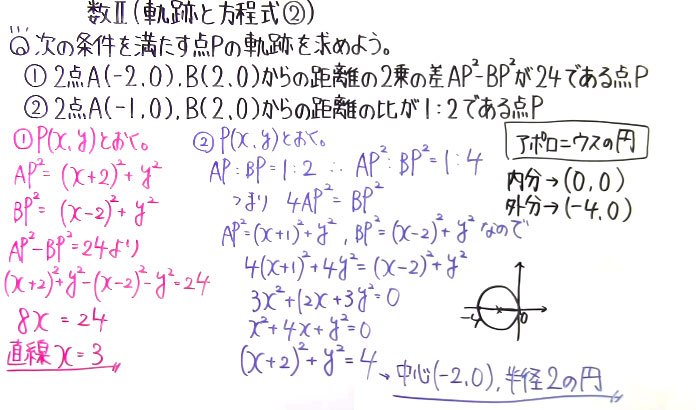 数Ⅱ(軌跡と方程式②)
Q 次の条件を満たす点Pの軌跡を求めよう。
① 2点A(-2,0),B(2,0)からの距離の2乗の差AP²-BP²が24である点P
② 2点A(-1,0),B(2,0)からの距離の比が1:2である点P
①P(x,y)とおく。
AP²=(x+2)²+y²
BP²=(x-2)²+y²
AP²-BP²=24より
(x+2)²+y²-(x-2)²-y²=24
8x=24
直線x=3
②P(x,y)とおく。
AP:BP=1:2 ∴ AP²:BP²=1:4
つまり 4AP²=BP²
AP²=(x+1)²+y²,BP²=(x-2)²+y²なので
4(x+1)²+4y²=(x-2)²+y²
3x²+12x+3y²=0
x²+4x+y²=0
(x+2)²+y²=4
→中心(-2,0),半径2の円
アポロニウスの円
内分→(0,0)
外分→(-4,0)
-4 0